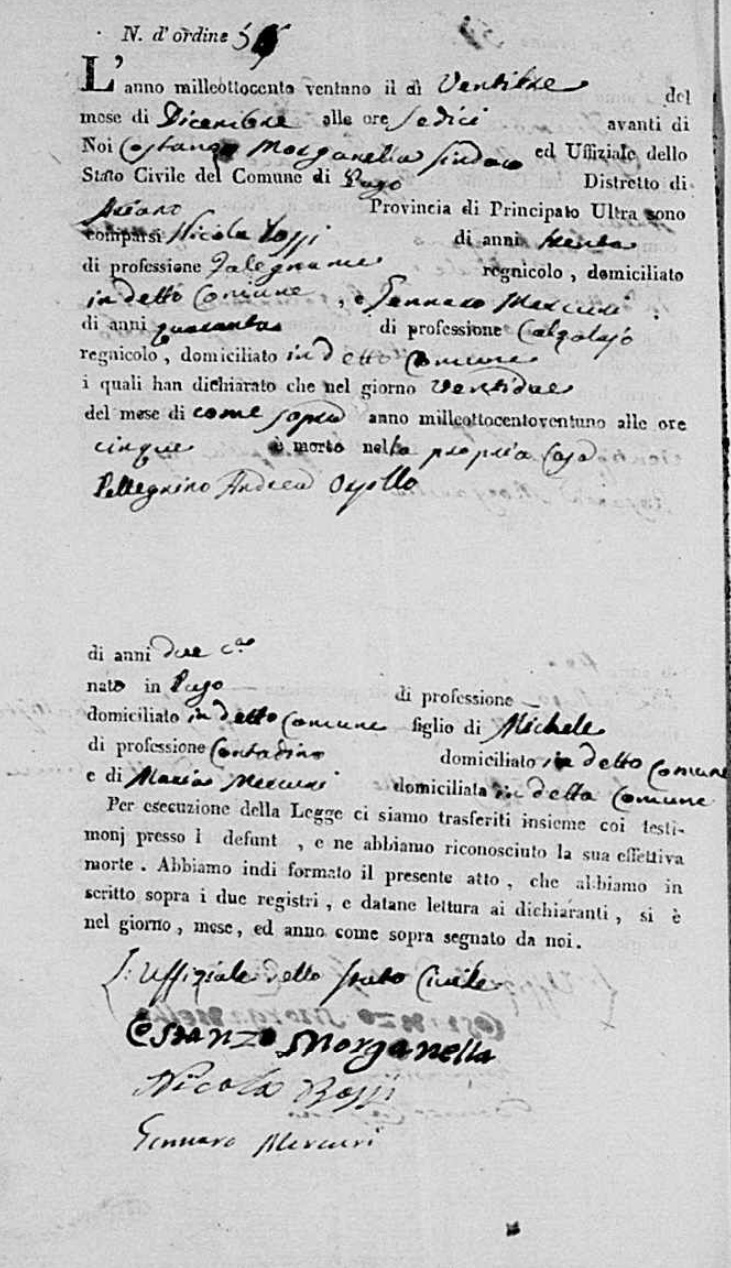 N. d'ordine
L'anno milleottocento ventuno il di Ventitre del
mese di Dicembre alle ore sedici avanti di
Noi Costanzo Morganella Sindaco ed Uffiziale dello
Stato Civile del Comune di Pago Distretto di
Ariano Provincia di Principato Ultra sono
comparsi Nicola Rossi di anni trenta
di professione Falegname regnicolo, domiciliato
in detto Comune, e Gennaro Mercuri
di anni quaranta di professione Calzolajo
regnicolo, domiciliato in detto Comune
i quali han dichiarato che nel giorno ventidue
del mese di come sopra anno milleottocentoventuno alle ore
cinque è morto nella propria Casa
Pellegrino Andrea
di anni due c.a
nato in Pago di professione —
domiciliato in detto Comune figlio di Michele
di professione Contadino domiciliato in detto Comune
e di Maria Mercuri domiciliata in detto Comune
Per esecuzione della Legge ci siamo trasferiti insieme coi testi-
monj presso l defunt , e ne abbiamo riconosciuto la sua effettiva
morte. Abbiamo indi formato il presente atto, che abbiamo in
scritto sopra i due registri, e datane lettura ai dichiaranti, si è
nel giorno, mese, ed anno come sopra segnato da noi.
L'Uffiziale dello Stato Civile
Costanzo Morganella
Nicola Rossi
Gennaro Mercuri